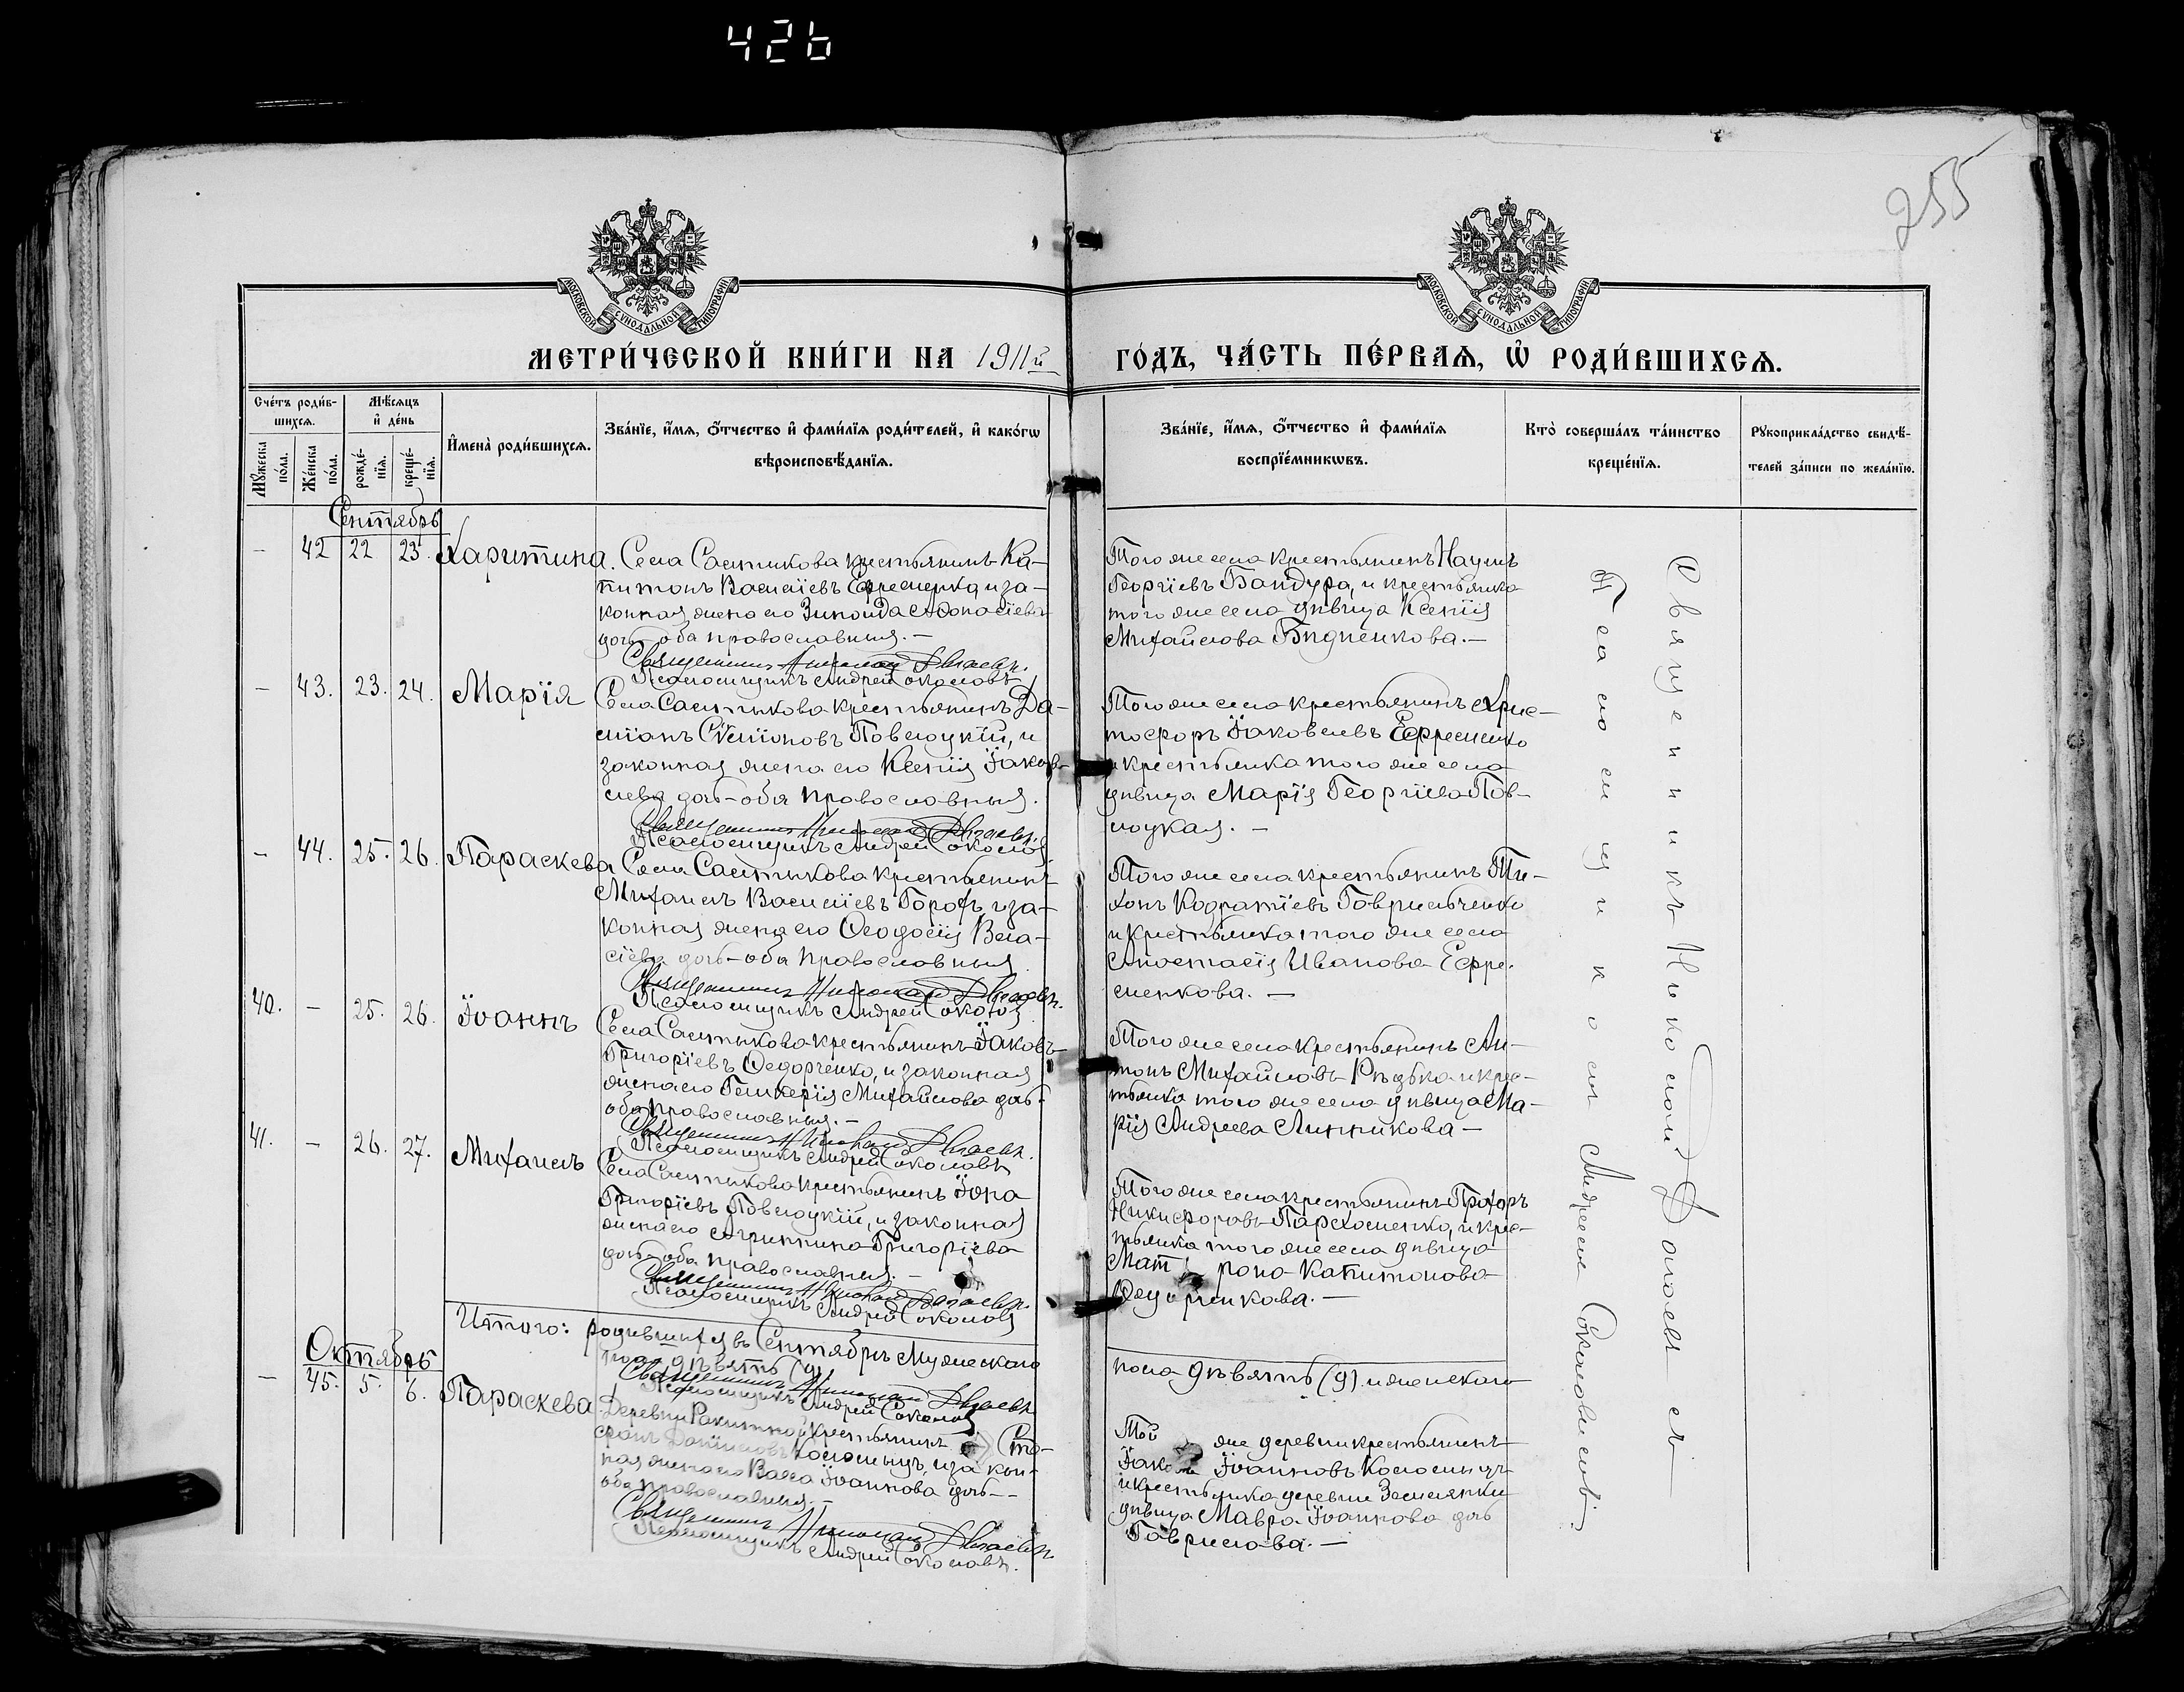 426
255
МОСКОВСКОЙ СѴНОДАЛЬНОЙ ТИПОГРАФІИ
МОСКОВСКОЙ СѴНОДАЛЬНОЙ ТИПОГРАФІИ
МЕТРИ́ЧЕСКОЙ КНИ́ГИ НА 1911й
ГО́ДЪ, ЧА́СТЬ ПЕ́РВАѦ, Ѡ҆ РОДИ́ВШИХСѦ.
Сче́тъ роди́в-
шихсѧ.
Мѹ́жеска по́ла.
Же́нска по́ла.
Мѣ́сѧцъ
и҆ де́нь
рожде́-
нїѧ.
креще́-
нїѧ.
И҆мена̀ роди́вшихсѧ.
Зва́нїе, и҆́мѧ, ѻ҆́тчество и҆ фами́лїѧ роди́телей, и҆ како́гѡ
вѣроисповѣ́данїѧ.
Зва́нїе, и҆́мѧ, ѻ҆́тчество и҆ фами́лїѧ
воспрїе́мникѡвъ.
Кто̀ соверша́лъ та́инство
креще́нїѧ.
Рѹкоприкла́дство свидѣ́-
телей за́писи по жела́нїю.
Сентябрь
— 42 22 23. Харитина. Села Салтыкова крестьянинъ Ка-
питонъ Василіевъ Ефременко, и за-
конная жена его Зинаида Аѳонасіева
дочь – оба православныя. —
Священникъ Николай
Псаломщикъ Андрей Соколовъ
Того же села крестьянинъ Наумъ
Георгіевъ Бандура, и крестьянка
того же села дѣвица Ксенія
Михайлова Бидненкова. —
— 43. 23. 24. Марія Села Салтыкова крестьянинъ Да-
міанъ Сѵмioновъ Повлоцкій, и
законная жена его Ксенія Іаков-
лева дочь – оба православныя.
Священникъ Николай
Псаломщикъ Андрей Соколовъ
Того же села крестьянинъ Хрис-
тофоръ Іаковлевъ Ефременко
и крестьянка того же села
дѣвица Марія Георгіева Пов-
лоцкая. —
— 44. 25. 26. Параскева Села Салтыкова крестьянинъ
Михаилъ Василіевъ Горохъ, и за-
конная жена его Ѳеодосія Вла-
сіева дочь – оба православныя.
Священникъ Николай
Псаломщикъ Андрей Соколовъ
Того же села крестьянинъ Ти-
хонъ Кодратіевъ Гаврильченко
и крестьянка того же села
Анастасія Иванова Ефре-
менкова. —
40. — 25. 26. Іоаннъ Села Салтыкова крестьянинъ Іаковъ
Григоріевъ Ѳедорченко, и законная
жена его Гликерія Михайлова дочь
оба православныя. —
Священникъ Николай
Псаломщикъ Андрей Соколовъ
Того же села крестьянинъ Ан-
тонъ Михайловъ Рѣдька и крес-
тьянка того же села дѣвица Ма-
рія Андреева Линникова —
41. — 26. 27. Михаилъ Села Салтыкова крестьянинъ Іона
Григоріевъ Повлоцкій, и законная
жена его Агриппина Григоріева
дочь – оба православныя. —
Священникъ Николай
Псаломщикъ Андрей Соколовъ
Того же села крестьянинъ Прохоръ
Никифоровъ Пархоменко, и крес-
тьянка того же села дѣвица
Матрона Капитонова
Ѳедорченкова. —
Итого: родившихся въ Сентябрѣ мужескаго
пола девять (9) и женскаго
Священникъ Николай
Псаломщикъ Андрей Соколовъ
Октябрь
— 45. 5. 6. Параскева Деревни Ракитной крестьянинъ
Коломыцъ, и закон-
ная жена его Васса Іоаннова дочь –
оба православныя. —
Священникъ Николай
Псаломщикъ Андрей Соколовъ.
Той же деревни крестьянинъ
Іаковъ Іоанновъ Коломыцъ
и крестьянка деревни Землянки
дѣвица Мавра Іоаннова дочь
Гаврилова. —
Священникъ Николай съ
Псаломщикомъ Андреемъ Соколовымъ.